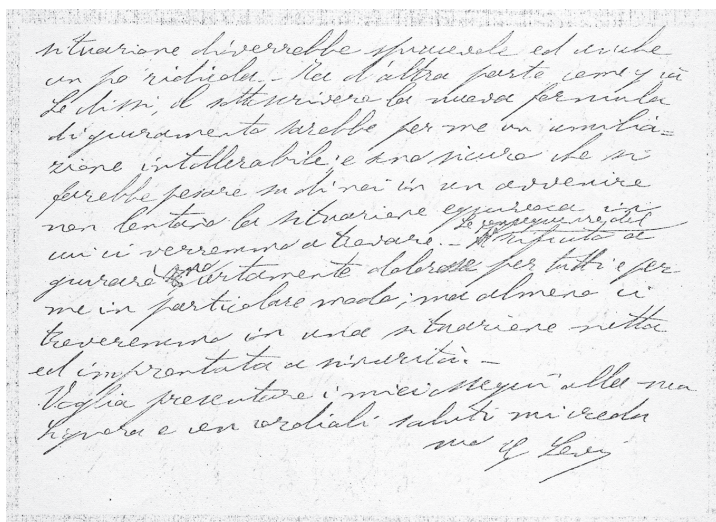 situazione diverrebbe spiacevole ed anche
un po' ridicola. - Ma d'altra parte come già
Le dissi, il sottoscrivere la nuova formula
di giuramento sarebbe per me un umilia=
zione intollerabile; e sono sicuro che si
farebbe pesare su di noi in un avvenire
non lontano la situazione equivoca in
cui ci verremmo a trovare. - Le conseguenze del rifiuto di
giurare sono certamente dolorose per tutti e per
me in particolare modo; ma almeno ci
troveremmo in una situazione netta
ed improntata a sincerità. -
Voglia presentare i miei ossequi alla sua
Signora e con cordiali saluti mi creda
suo G Levi